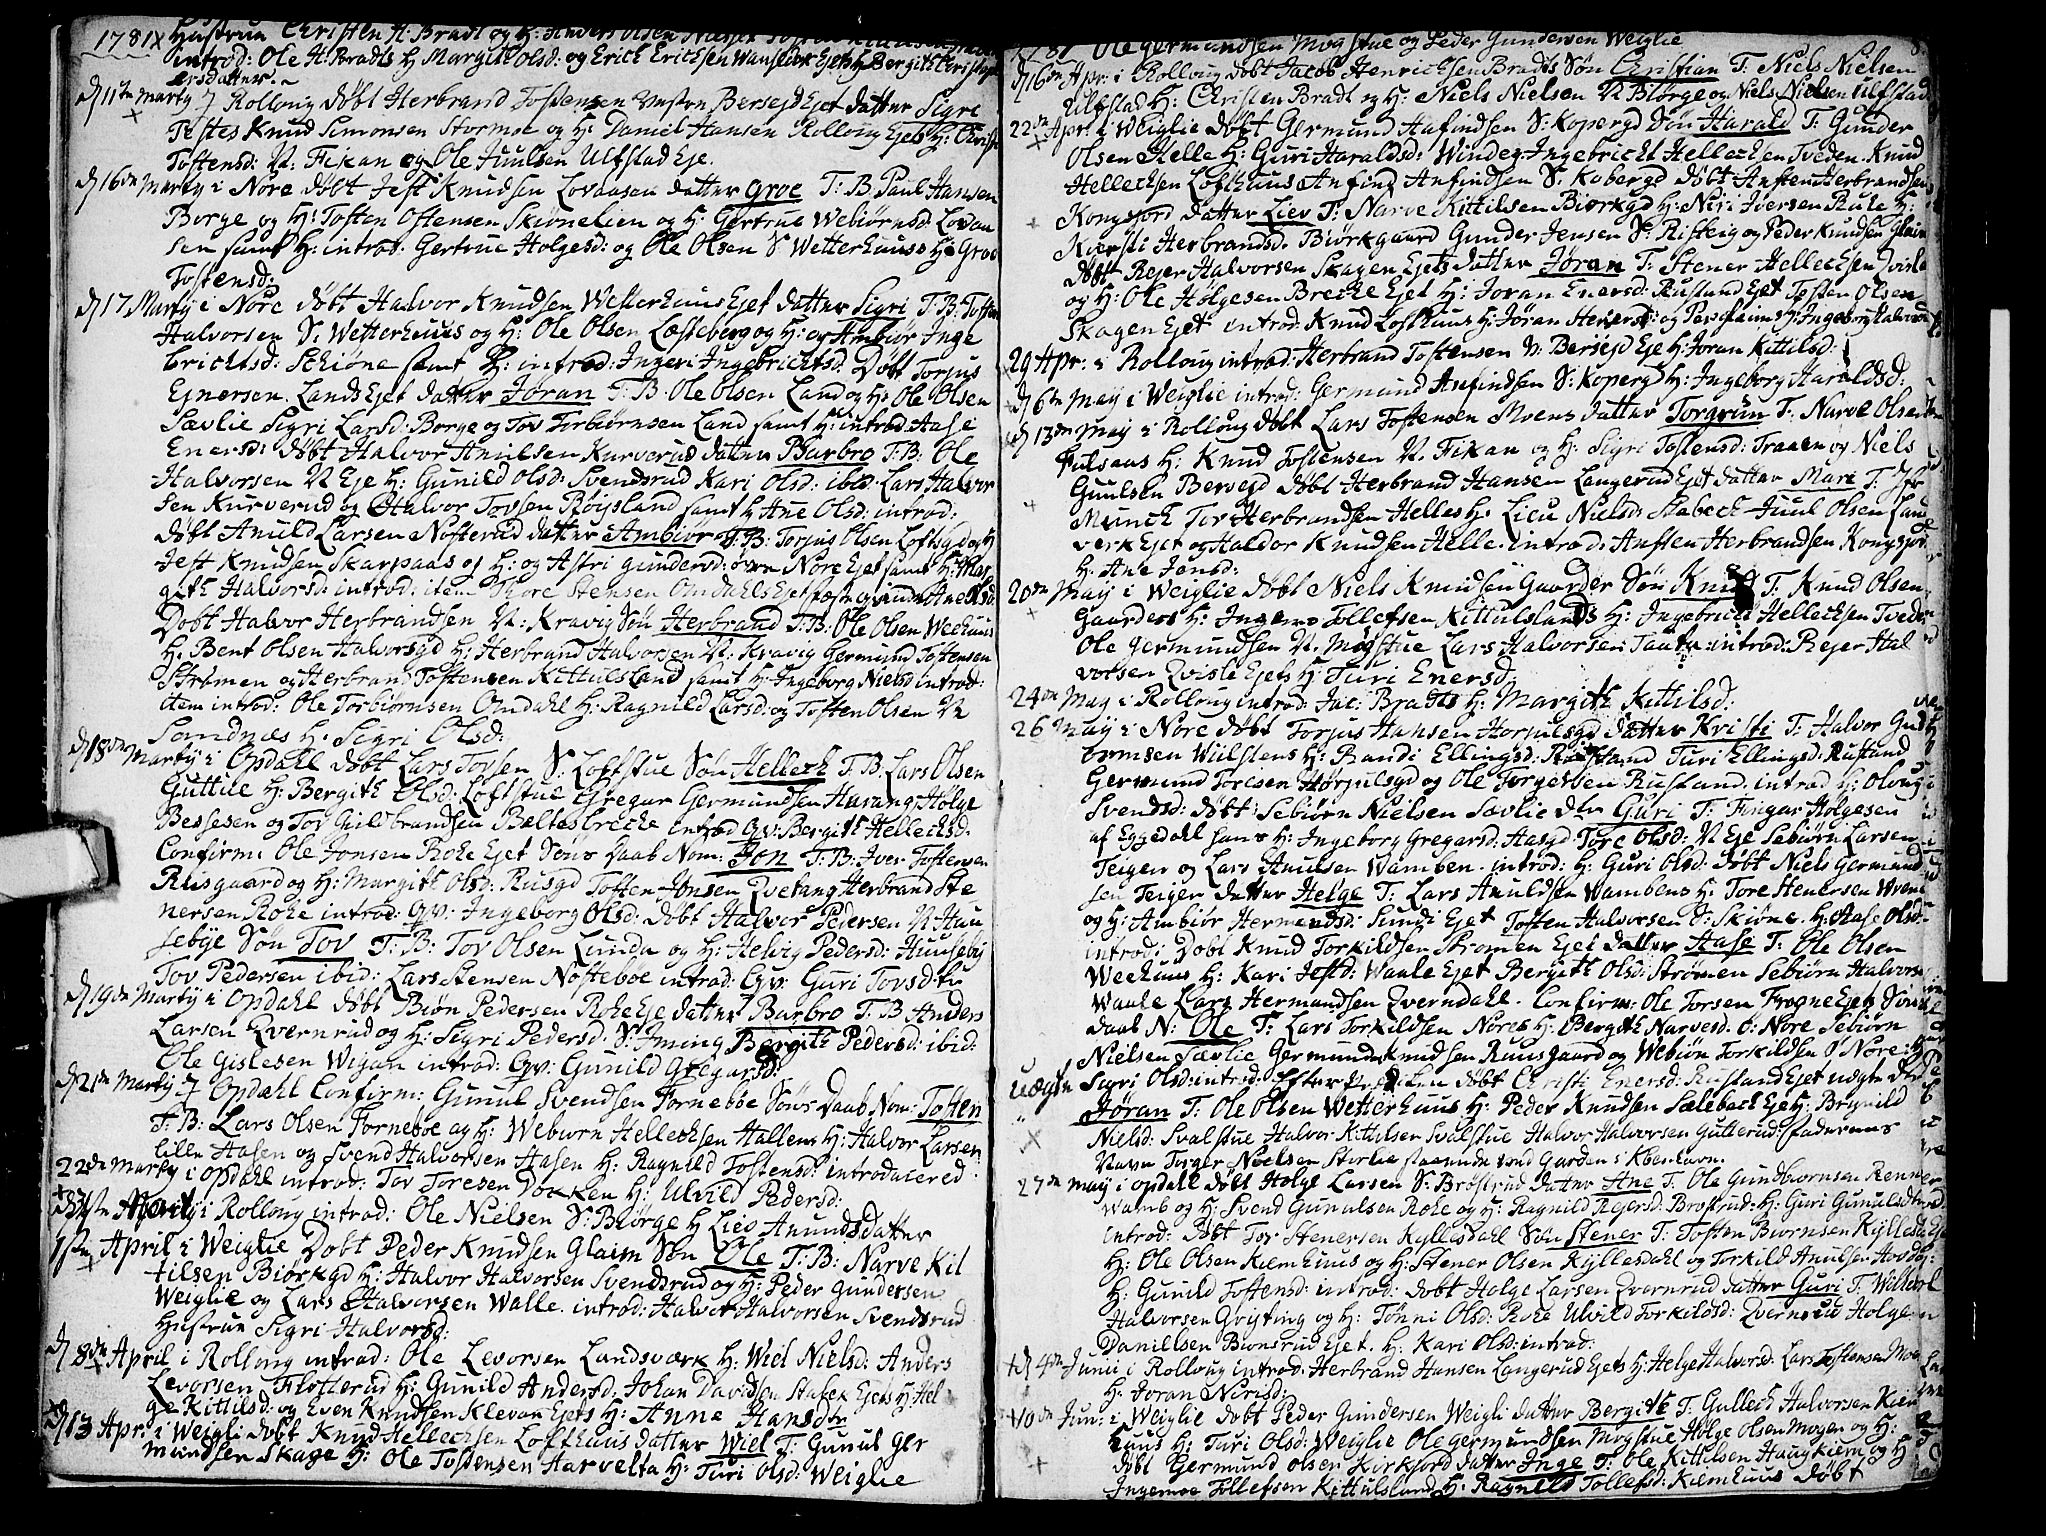 1781
Hustrue Christen H: Bradt og H: Anders Olsen
introd: Ole H. Bradts H Margith Olsd: og Erich Erichsen Wanslick Ejets H Bergith Christoph
ersdatter.
d 11te Marty J Rolloug døbt Herbrand Tostensen Bersejd Ejet datter Sigri
Testes Knud Simonsen Stormoe og H: Daniel Hansen Rolloug Ejets H: Christi
Tostensd: N: Fikan og Ole Juulsen Ulfstad Eje.
d 16de Marty i Nore døbt Jest Knudsen Lovaasen datter Groe T: B. Paul Hansen
Borge og H: Tosten Ostensen Skiønelien og H: Gertrue Webiørnsd: Lovaa
sen samt H: introd: Gertrue Holgesd: og Ole Olsen S. Wetterhuuss H: Groe
Tostensd:
d 17 Marty i Nore døbt Halvor Knudsen Wetterhuus Ejet datter Sigri T: B: Tosten
Halvorsen S. Wetterhuus og H: Ole Olsen Læsteberg og H: og Ambiør Inge
brichtsd: Schiøne samt H: introd: Ingeri Ingebrichtsd: Døbt Torjus
Ejnersen Lands Ejet datter Jøran T: B. Ole Olsen Land og H: Ole Olsen
Sævlie Sigri Larsd: Borge og Tov Torbiørnsen Land samt H: introd: Aase
Enersd: døbt Halvor Anulsen Kurverud datter Barbro T: B: Ole
Halvorsen N Eje H: Gunild Olsd: Svendsrud Kari Olsd: ibid: Lars Halvor
sen Kurverud og Halvor Tovsen Røjsland samt H Ane Olsd: introd:
Døbt Anuld Larsen Nøsterud datter Ambiør T: B: Torjus Olsen Loftsgd og H
Jest Knudsen Skarpaas og H: og Astri Gundersd: øvre Nore Ejet samt H: Mar
gith Halvorsd: introd: item Thore Stensen Omdahls Ejet Ane Olsd:
Døbt Halvor Herbrandsen N: Kravig Søn Herbrand T: B: Ole Olsen Weehuus
H: Bent Olsen Halvorsgd H: Herbrand Halvorsen N: Kravig Germund Tostensen
Strømen og Herbrand Tostensen Kittulsland samt H: Ingeborg Nielsd introd:
item introd: Ole Torbiørnsen Omdahl H: Ragnild Larsd: og Tosten Olsen N
Sandnæs H: Sigri Olsd:
d 18de Marty i Opdahl døbt Lars Tovsen S. Loftstue Søn Hellech T: B: Lars Olsen
Guttue H: Bergith Olsd: Loftstue Gregar Germundsen Harang Holge
Bessesen og Tov Guldbrandsen Bæltesbreche introd Qv: Bergith Hellechsd:
Confirm: Ole Jonsen Roke Ejet Søns Daab Nom: Jon T: B: Iver Tostensen
Ruisgaard og H: Margith Olsd: Rusgd Tosten Jonsen Qvetang Herbrand Ste
nersen Roke introd: Qv: Ingeborg Olsd: døbt Halvor Pedersen N Huu
sebye Søn Tov T: B: Tov Olsen Lunda og H: Helvig Pedersd: Huuseby
Tov Pedersen ibid: Lars Stensen Nøsteboe introd: Qv: Guri Tovsd:
d 19de Marty i Opdahl døbt Biøn Pedersen Roke Eje datter Barbro T. B Anders
Larsen Qvernrud og H: Sigri Pedersd: S: Iming Bergith Pedersd: ibid:
Ole Gislesen Wigan introd: Qv: Gunild Gregarsd:
d 21de Marty J Opdahl Confirm: Gunul Svendsen Fornebøe Søns Daab Nom: Tosten
T: B: Lars Olsen Fornebøe og H: Weburn Hellechsen Hallens H: Halvor Larsen
lille Hasen og Svend Halvorsen Aasen H: Ragnild Tostensd: introducered
22de Marty i Opdahl introd: Tov Toresen Docken H: Ulvild Pedersd:
Marty i Rolloug introd: Ole Nielsen S: Biørge H Lies Anundsdatter
1ste April i Weiglie Døbt Peder Knudsen Glaim Søn Ole T: B: Narve Kit
tilsen Biørkgd H: Halvor Halvorsen Svendsrud og H: Peder Gundersen
Weiglie og Lars Halvorsen Walle. introd: Halvor Halvorsen Svendsrud
Hustrue Sigri Halvorsd:
d 8de April i Rolloug introd: Ole Levorsen Landsværk H: Wiel Nielsd: Anders
Levorsen Flotterud H: Gunild Andersd: Johan Davidsen Stafek Ejets H: Hel
ge Kittilsd: og Even Knudsen Klevan Ejets H: Anne Hansdtr
d 13 Apr: i Weigli døbt Knud Hellechsen Lofthuus datter Wiel T: Gunul Ger
mundsen Skage H: Ole Tostensen Aarvelta H: Turi Olsd: Weiglie
1781 Ole Germundsen Mogstue og Peder Gundersen Weiglie
d 16de Apr: i Rolloug døbt Jacob Henrichsen Bradts Søn Christian T: Niels Nielsen
Ulfstad H: Christen Bradt og H: Niels Nielsen N Biørge og Niels Nielsen Ulfstad
22de Apr: i Weiglie døbt Germund Anfindsen S: Kopergd Søn Harald T: Gunder
Olsen Helle H: Guri Haraldsd: Windeg Ingebricht Hellechsen Tveden Knud
Hellechsen Lofthuus Anfind Anfindsen S. Kobergd døbt Ansten Herbrandsen
Kongsjord datter Liev T: Narve Kittilsen Biørkgd H: Niri Iversen Ruke H:
Kiersti Herbrandsd. Biørkgaard Gunder Jensen S: Risteig og Peder Knudsen Glaim
døbt Rejer Halvorsen Skagen Ejets datter Jøran T: Stener Hellechsen Qvisle
og H: Ole Holgesen Breche Ejet H: Joran Enersd: Rusland Ejet Tosten Olsen
Skagen Ejet introd: Knud Lofthuus H: Jøran Henersd: og Per Glaims H: Ingeborg Halvorsd
29 Apr: i Rolloug introd: Herbrand Tostensen N: Bersejd Eje H: Joran Kittilsd:
d 6te May i Weiglie introd: Germund Anfindsen S: Kopergd H: Ingeborg Haraldsd:
d 13de May i Rolloug døbt Lars Tostensen Moens datter Torgrim T: Narve Olsen
Fulsaas H: Knud Tostensen N. Fikan og H: Sigri Tostensd: Traaen og Niels
Guulsen Bersegd døbt Herbrand Hansen Langerud Ejet datter Mari T:
Munch Tov Herbrandsen Helles H: Licu Nielsd: Stabeck Juul Olsen Land
verk Ejet og Haldor Knudsen Helle. introd: Ansten Herbrandsen Kongsjor
H: Ane Jonsd:
20de May i Weiglie døbt Niels Knudsen Gaarder Søn Knud T: Knud Olsen
Gaarders H: Ingemo Tollefsen Kittulslands H: Ingebricht Hellechsen Tveder
Ole Germundsen N. Mogstue Lars Halvorsen Taata introd: Rejer Hal
vorsen Qvisle Ejets H: Turi Enersd:
24de May i Rolloug introd: Jac: Bradts H: Margith Kittilsd:
26 May i Nore døbt Torjus Hansen Horjulsgd datter Kristi T: Halvor Gud
bremsen Wiilstens H: Randi Ellingsd: Rustand Turi Ellingsd: Rustand
Germund Toresen Hørjulsgd og Ole Torgersen Rusland. introd H: Oloug
Svendsd: døbt Sebiørn Nielsen Sævlie dtr Guri T: Fingar Holgesen
af Eggedahl hans H: Ingeborg Gregarsd: Aasgd Tore Olsd: N Eje Sebiørn Larsen
Teigen og Lars Anulsen Wamben. introd: H: Guri Olsd: døbt Niels Germund
sen Teigen datter Helge T: Lars Anuldsen Wambens H: Tore Stenersen Wrene
og H: Ambiør Hermandsd: Sundi Ejet Tosten Halvorsen S: Skiøne. H: Aase Olsd:
introd: Døbt Knud Torkildsen Stromen Ejet datter Aase T: Ole Olsen
Weehuus H: Kari Jestd: Waale Ejet Bergith Olsd: Strømen Sebiørn Halvors
Waale Lars Hermandsen Qverndahl. Confirm: Ole Torsen Frogne Ejets Søns
daab N: Ole T: Lars Torkildsen Nores H: Bergith Narvesd: Ø: Nore Sebiørn
Nielsen Sævlie Germund Knudsen Ruusgaard og Webiøn Torkildsen Ø Nore: H:
Uægte Sigri Olsd: introd: Efter Prædiken døbt Christi Enersd: Rusland Ejet uægte dtr
Jøran T: Ole Olsen Wetterhuus H: Peder Knudsen Sælebach Eje H: Brynild
Nielsd: Svalstue Halvor Kittilsen Svalstue Halvor Halvorsen Gutterud: faderens
Navn Torger Nielsen Storlie staaende ved Garden i Kbenhavn.
27de May i Opdahl døbt Holge Larsen S: Brøstrud datter Ane T: Ole Gundbiørnsen Renne
Wamb og H: Svend Gunulsen Roke og H: Ragnild Rejersd: Brostrud: H: Guri Gunulsd
introd: Døbt Tov Stenersen Kyllesdahl Søn Stener T: Tosten Biornsen Kyllesd: Eje
H: Ole Olsen Kiemhuus og H: Stener Olsen Kyllesdahl og Torkild Anulsen Hovde
H: Gunild Tostensd: introd: døbt Holge Larsen Qvernrud datter Guri T: Willevl
Halvorsen Qvisting og H: Tønni Olsd: Roke Ulvild Torkildsd: Qvernrud Holge
Danielsen Bionsrud Ejet. H: Kari Olsd: introd:
d 4de Junii i Rolloug introd: Herbrand Hansen Langerud Ejets H: Helge Halvorsd: Lars Tostensen Moe
H: Joran Nirisd:
10de Jun: i Weiglie døbt Peder Gundersen Weigli datter Bergith T: Gullech Halvorsen Kiem
huus H: Turi Olsd: Weiglie Ole Germundsen Mogstue Holge Olsen Mogen og H:
døbt Germund Olsen Kirkjord datter Inge T: Ole Kittilsen Haugkiern og H
Ingemoe Tollefsen Kittulsland H: Ragnild Tollefsd: Kiemhuus døbt